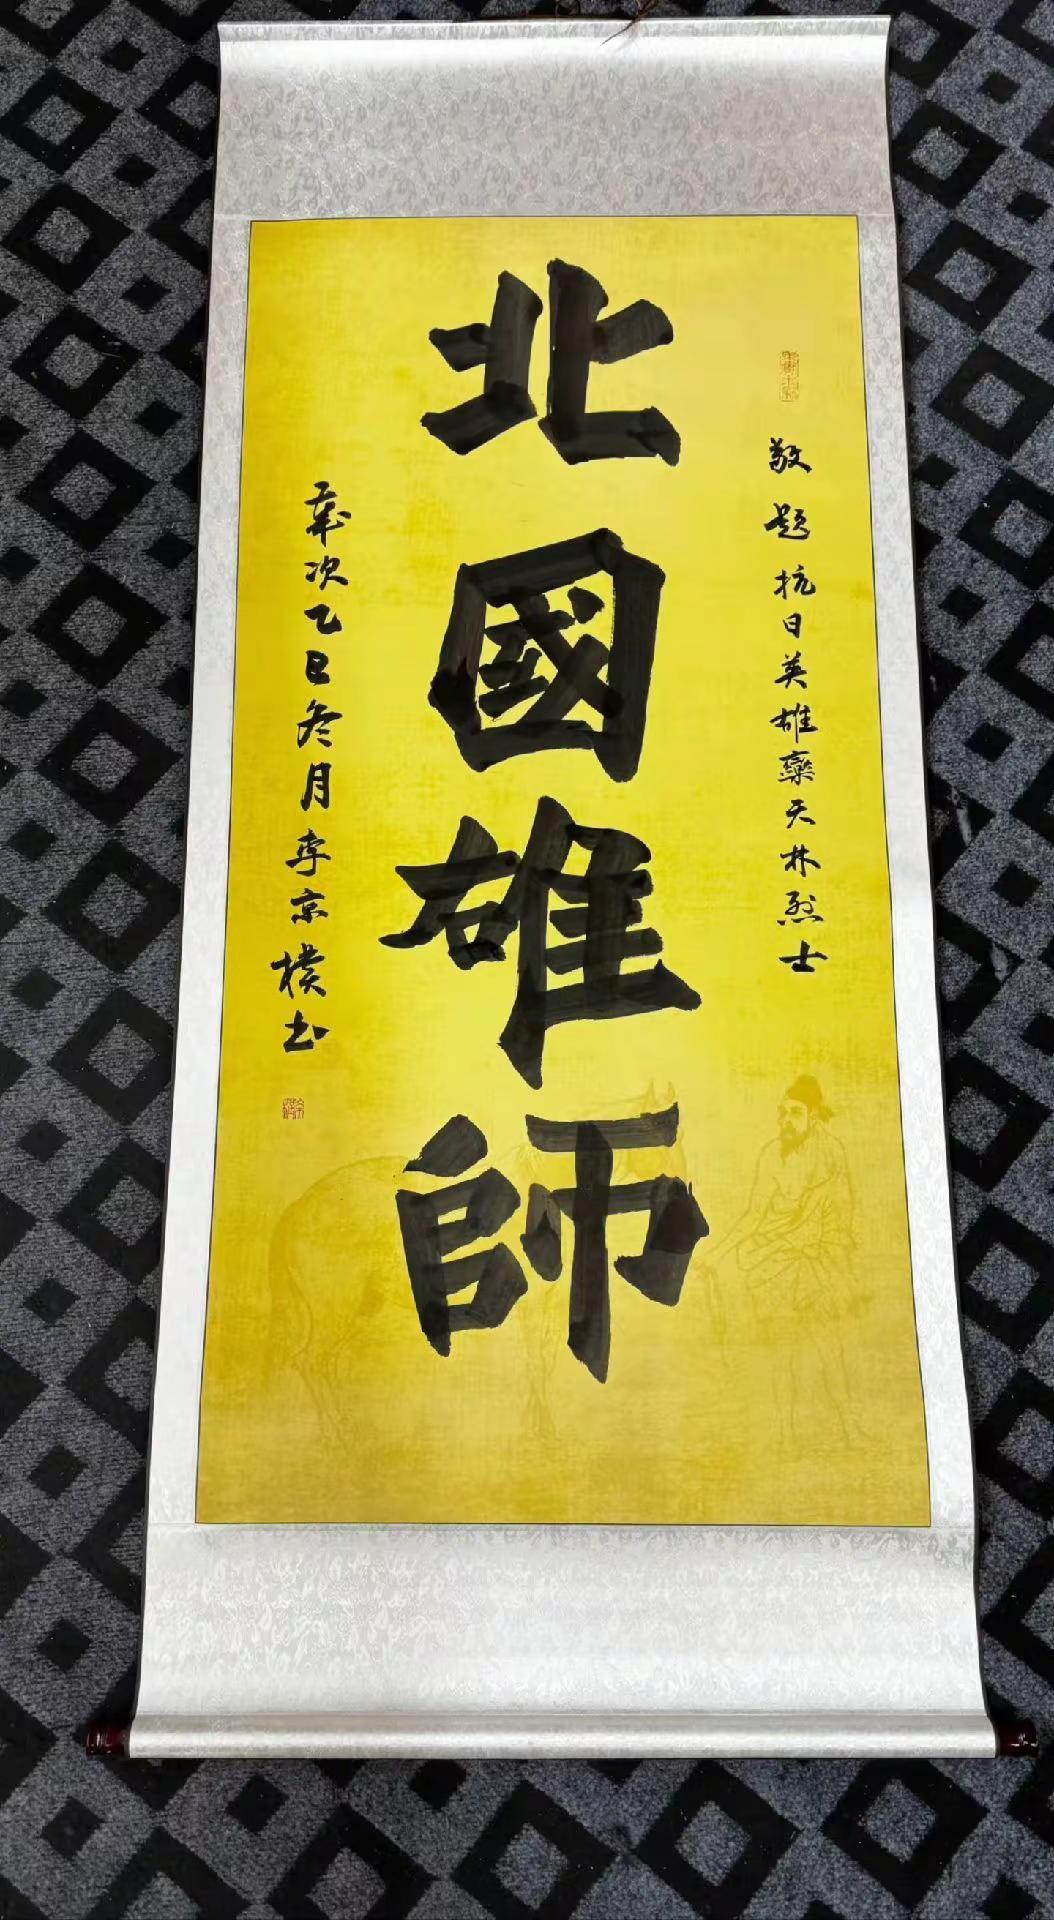 敬题抗日英雄栾天林烈士
北國雄師
歲次乙巳冬月李京樸书